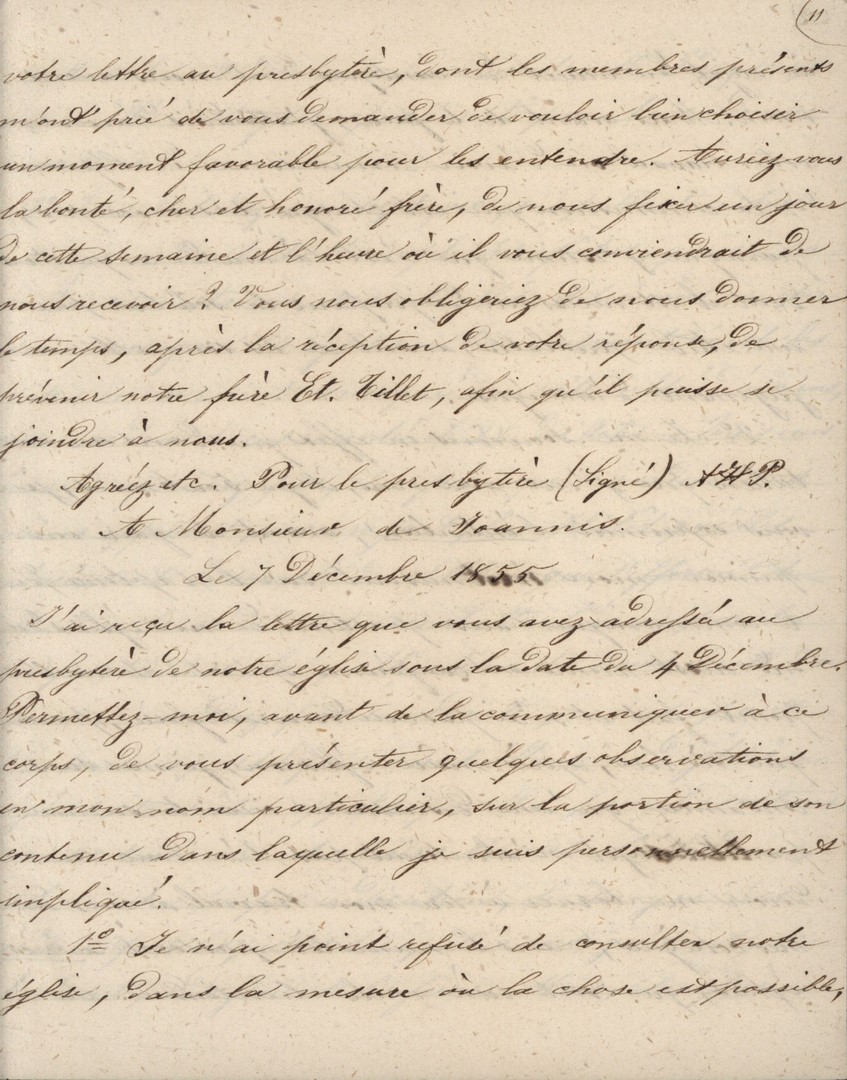 11
votre lettre au presbytère, dont les membres présents
m'ont prié de vous demander de vouloir bien choisir
un moment favorable pour les entendre. Auriez-vous
la bonté, cher et honoré frère, de nous fixer un jour
de cette semaine et l'heure où il vous conviendrait de
nous recevoir ? Vous nous obligeriez de nous donner
le temps, après la réception de votre réponse, de
prévenir notre frère Et. Tillet, afin qu'il puisse se
joindre à nous.
Agréez etc. Pour le presbytère (Signé) AHP.
A Monsieur de Joannis.
Le 7 Décembre 1855
J'ai reçu la lettre que vous avez adressée au
presbytère de notre église sous la date du 4 Décembre.
Permettez-moi, avant de la communiquer à ce
corps, de vous présenter quelques observations
en mon nom particulier, sur la portion de son
contenu dans laquelle je suis personnellement
impliqué.
1º Je n'ai point refusé de consulter notre
église, dans la mesure où la chose est possible,